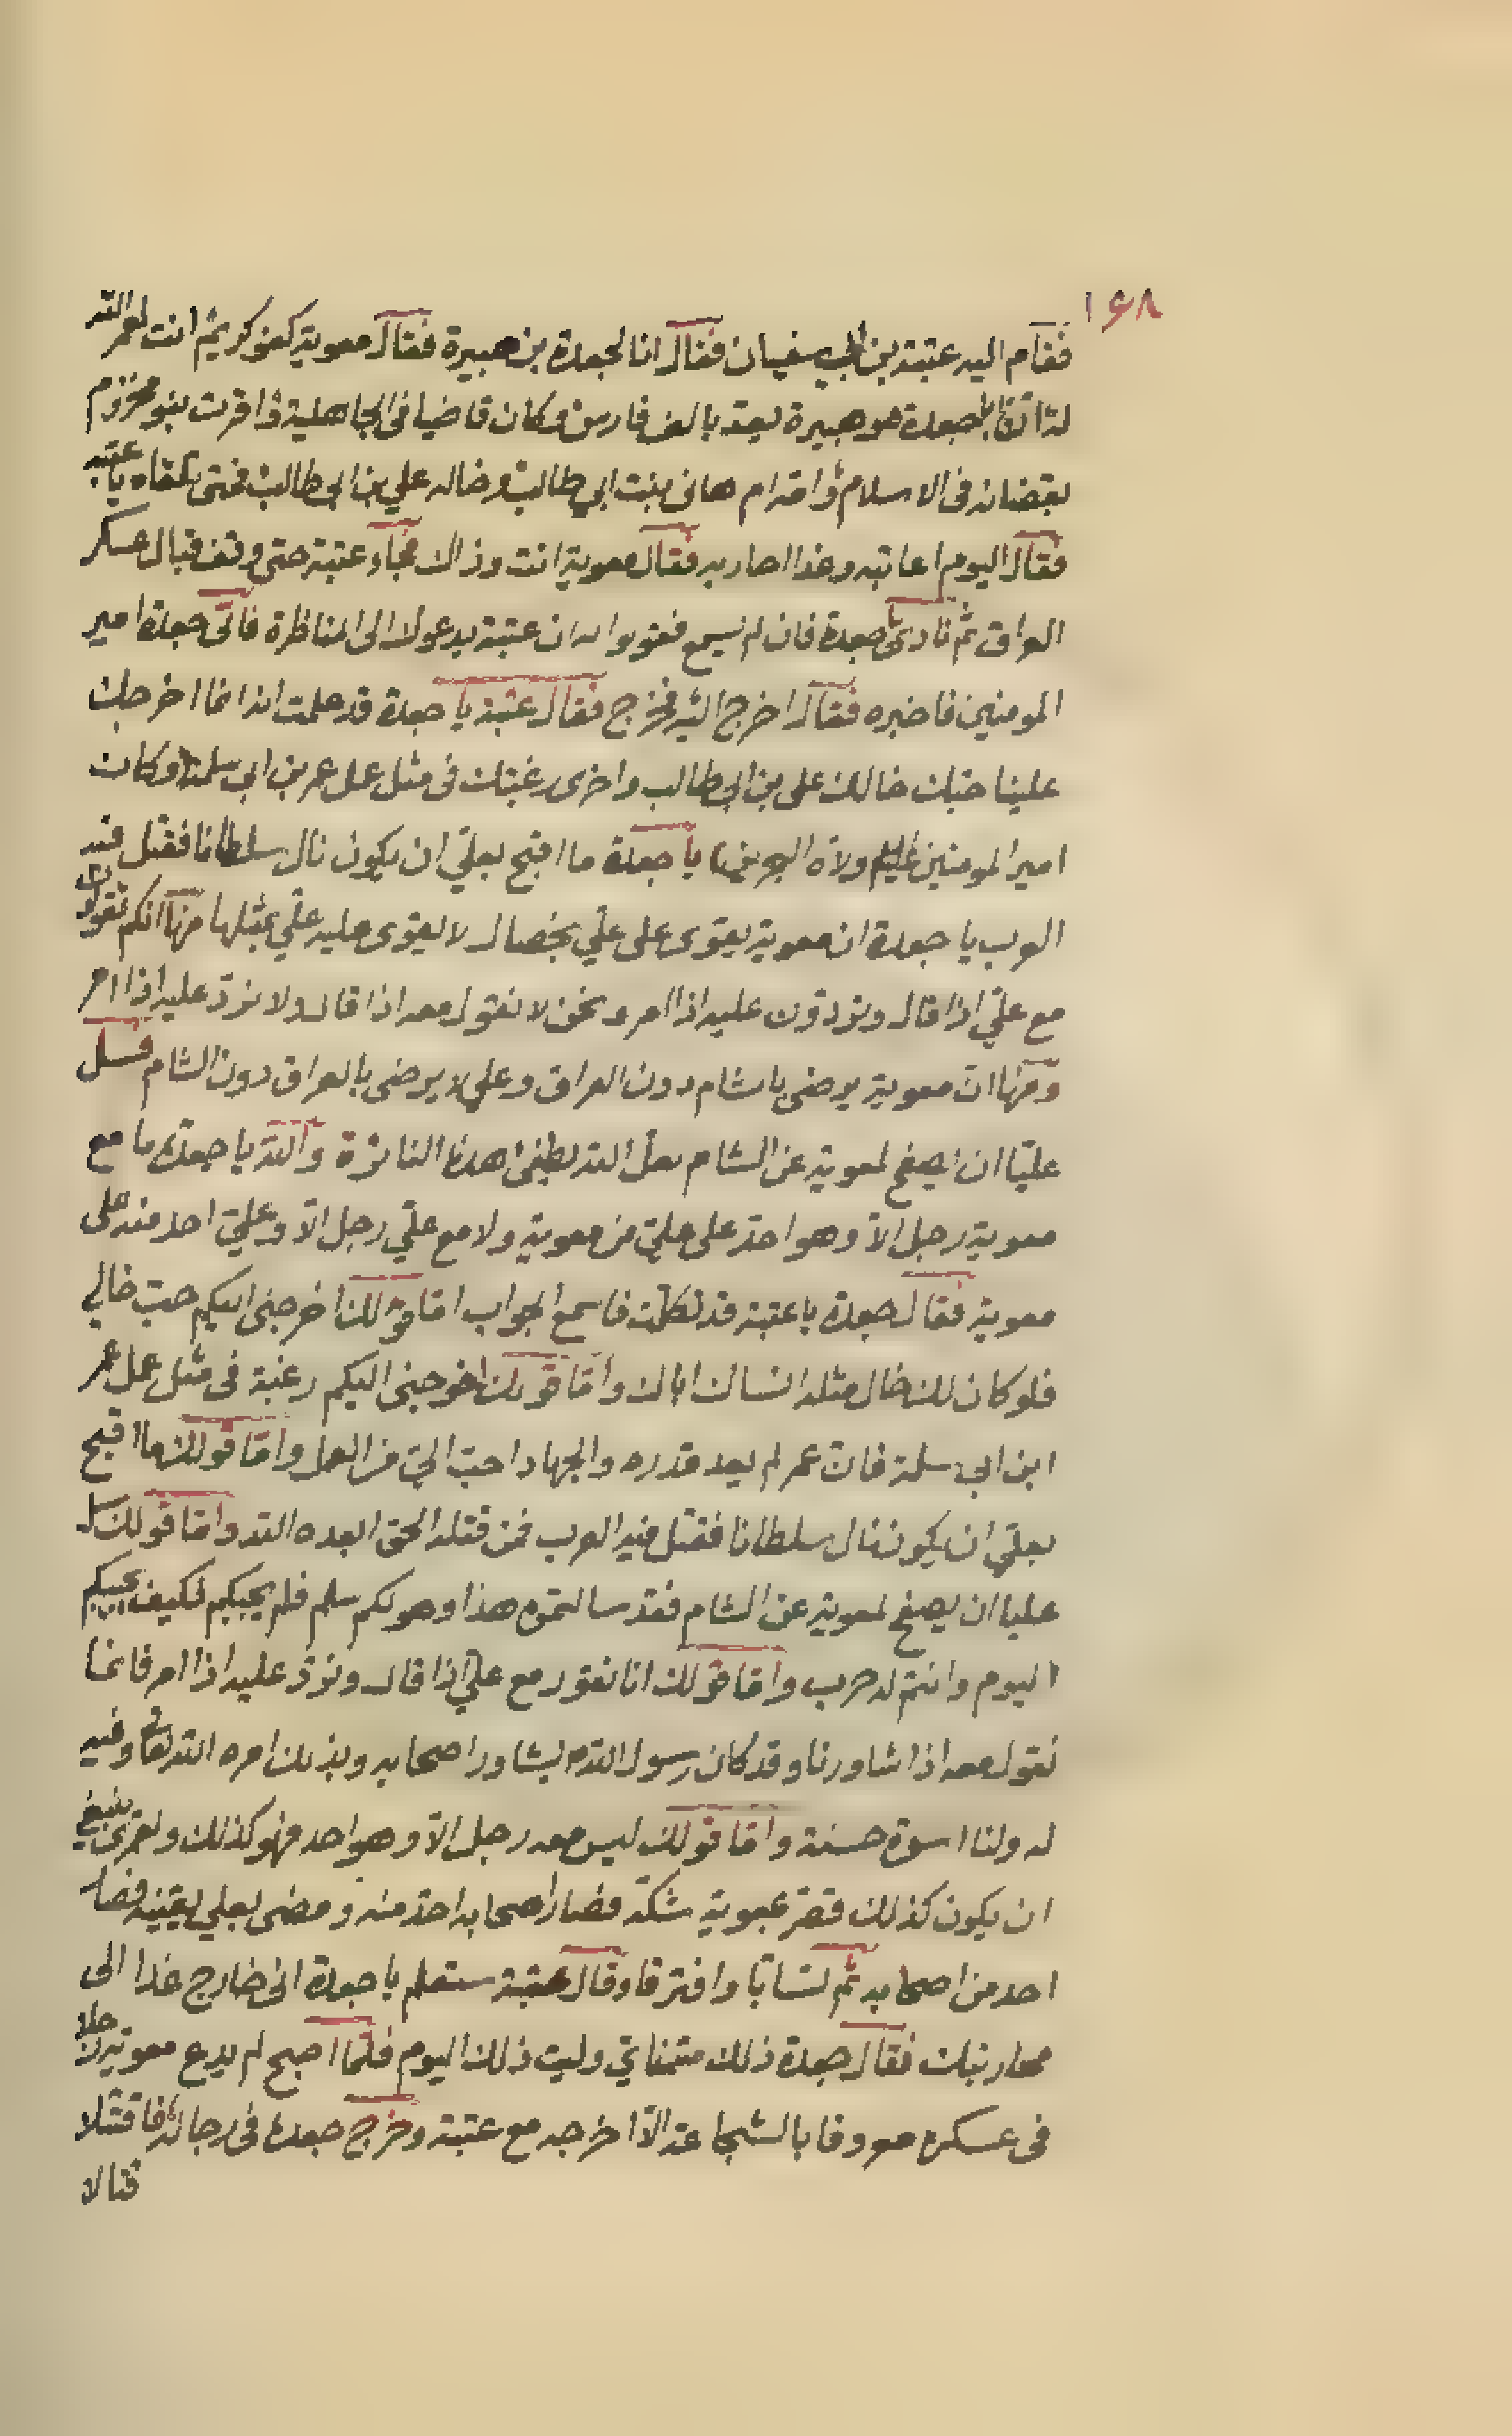 ١٦٨
فقام اليه عتبة بن ابي سفيان فقال انا لجعدة بن هبيرة فقال معوية كفو كريم انت لعمر الله
لذاك ابا جعدة هو هبيرة يعد بالف فارس وكان قاضيا في الجاهلية واقرت بنو مخزوم
بقضائه في الاسلام وامه ام هانى بنت ابي طالب وخاله علي بن ابي طالب فمتى تلقاه يا عتبه
فقال اليوم اعاتبه وغدا احاربه فقال معوية انت وذاك فجاء عتبة حتى وقف قبال عسكر
العراق ثم نادى يا جعدة فان لم يسمع فقولوا له ان عتبة يدعوك الى المناظرة فاتى جعدة امير
المومنين فاخبره فقال اخرج اليه فخرج فقال عتبة يا جعدة قد علمت انه انما اخرجك
علينا حبك خالك على بن ابي طالب واخرى رغبتك فى مثل عمل عمر بن ابى سلمة وكان
امير المومنين عليه السلم ولاه البحرين يا جعدة ما اقبح بعلي ان يكون نال سلطانا فقتل فيه
العرب يا جعدة ان معوية يقوى على علي بخصال لا يقوى عليه علي بمثلها منها انكم تقولون
مع علي اذا قال وتردون عليه اذا امر ونحن لا نقول معه اذا قال ولا نرد عليه اذا امر
ومنها ان معوية يرضى باشام دون العراق وعلي لا يرضى بالعراق دون الشام فسل
عليا ان يصفح لمعوية عن الشام لعل الله يطفئ هذه النائرة والله يا جعدة ما مع
معوية رجل الا وهو احد على علي من معوية ولا مع علي رجل الا وعلي احد منه على
معوية فقال جعدة يا عتبة قد تكلمت فاسمع الجواب اما قولك اخرجنى اليكم حب خالي
فلو كان لك خال مثله انساك اباك واما قولك اخرجنى اليكم رغبة فى مثل عمل عمر
ابن ابي سلمة فان عمر لم يعد قدره والجهاد احب الي من العمل واما قولك ما اقبح
بعلي ان يكون نال سلطانا فقتل فيه العرب فمن قتله الحق ابعده الله واما قولك سل
عليا ان يصفح لمعوية عن الشام فقد سالتموه هذا وهو لكم سلم فلم يجبكم فكيف يجيبكم
اليوم وانتم له حرب واما قولك انا نقول مع علي اذا قال ونرد عليه اذا امر فانما
نقول معه اذا شاورنا وقد كان رسول الله م يشاور اصحابه وبذلك امره الله تعالى وفيه
له ولنا اسوة حسنة واما قولك ليس معه رجل الا وهو احد فهو كذلك ولعمرى ينبغي
ان يكون كذلك قصر بمعوية شكه فصار اصحابه احد منه ومضى بعلي يقينه فصار
احد من اصحابه ثم تسابا وافترقا وقال عتبة ستعلم يا جعدة انى خارج غدا الى
محاربتك فقال جعدة ذلك متمناي وليت ذلك اليوم فلما اصبح لم يدع معوية رجلا
فى عسكره معروفا بالشجاعة الا اخرجه مع عتبة وخرج جعدة فى رجاله فاقتتلا
قتالا